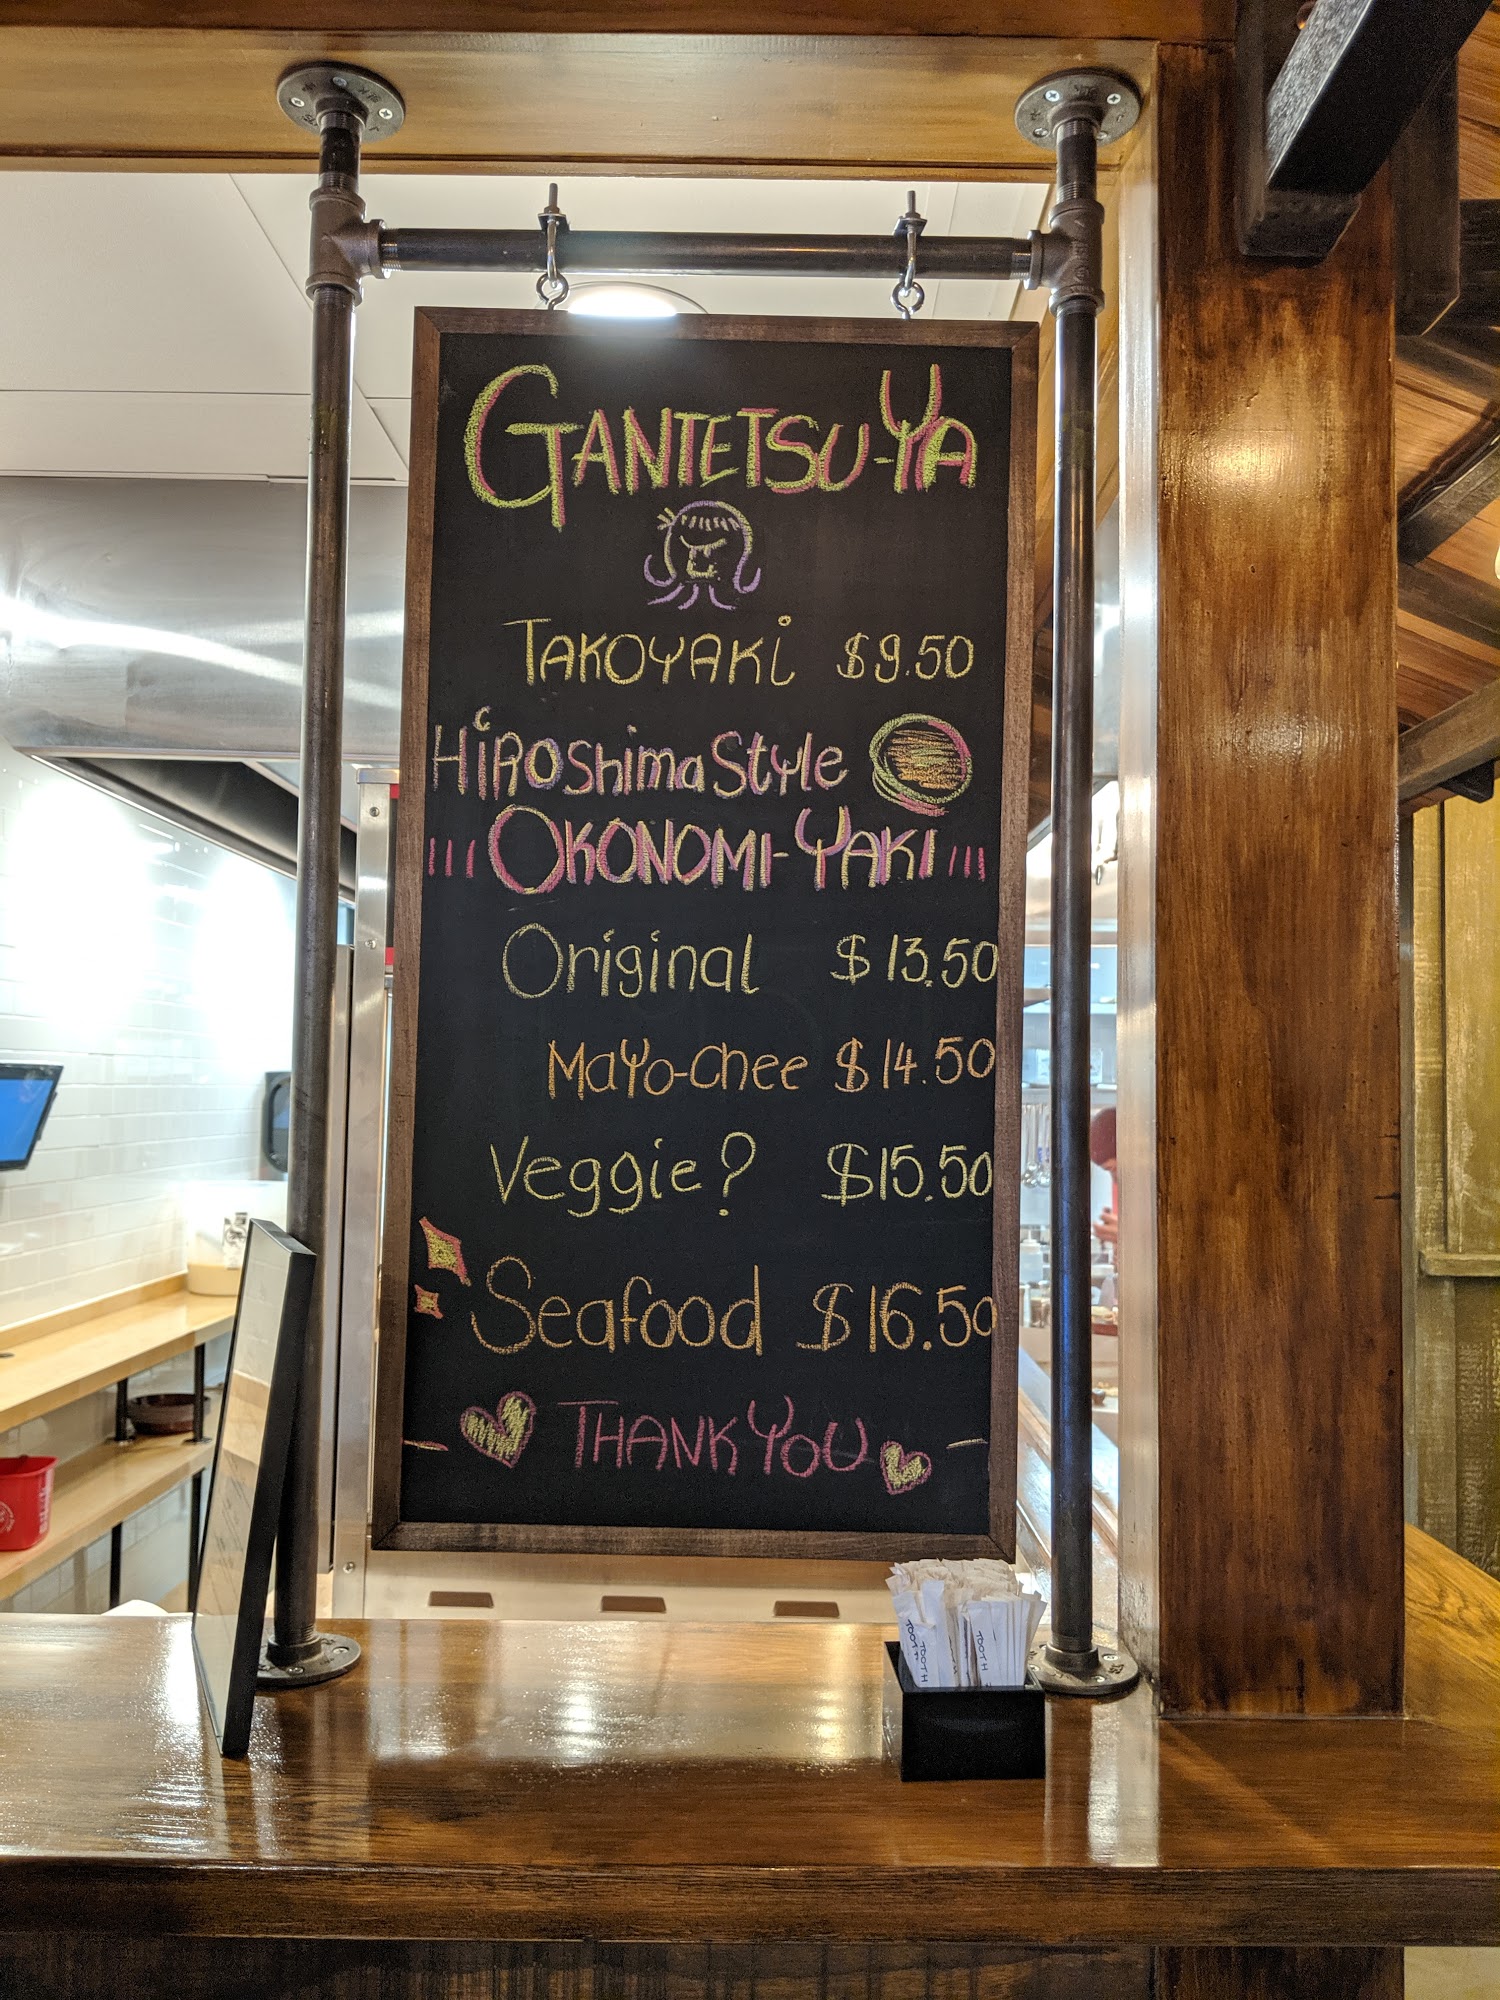 GANTETSU-YA
TAKOYAKi $9.50
HiROShima Style
OKONOMI-YAKI
Original $13.50
MaYo-chee $14.50
Veggie? $15.50
Seafood $16.50
THANK YOU
TOOTH
TOOTH